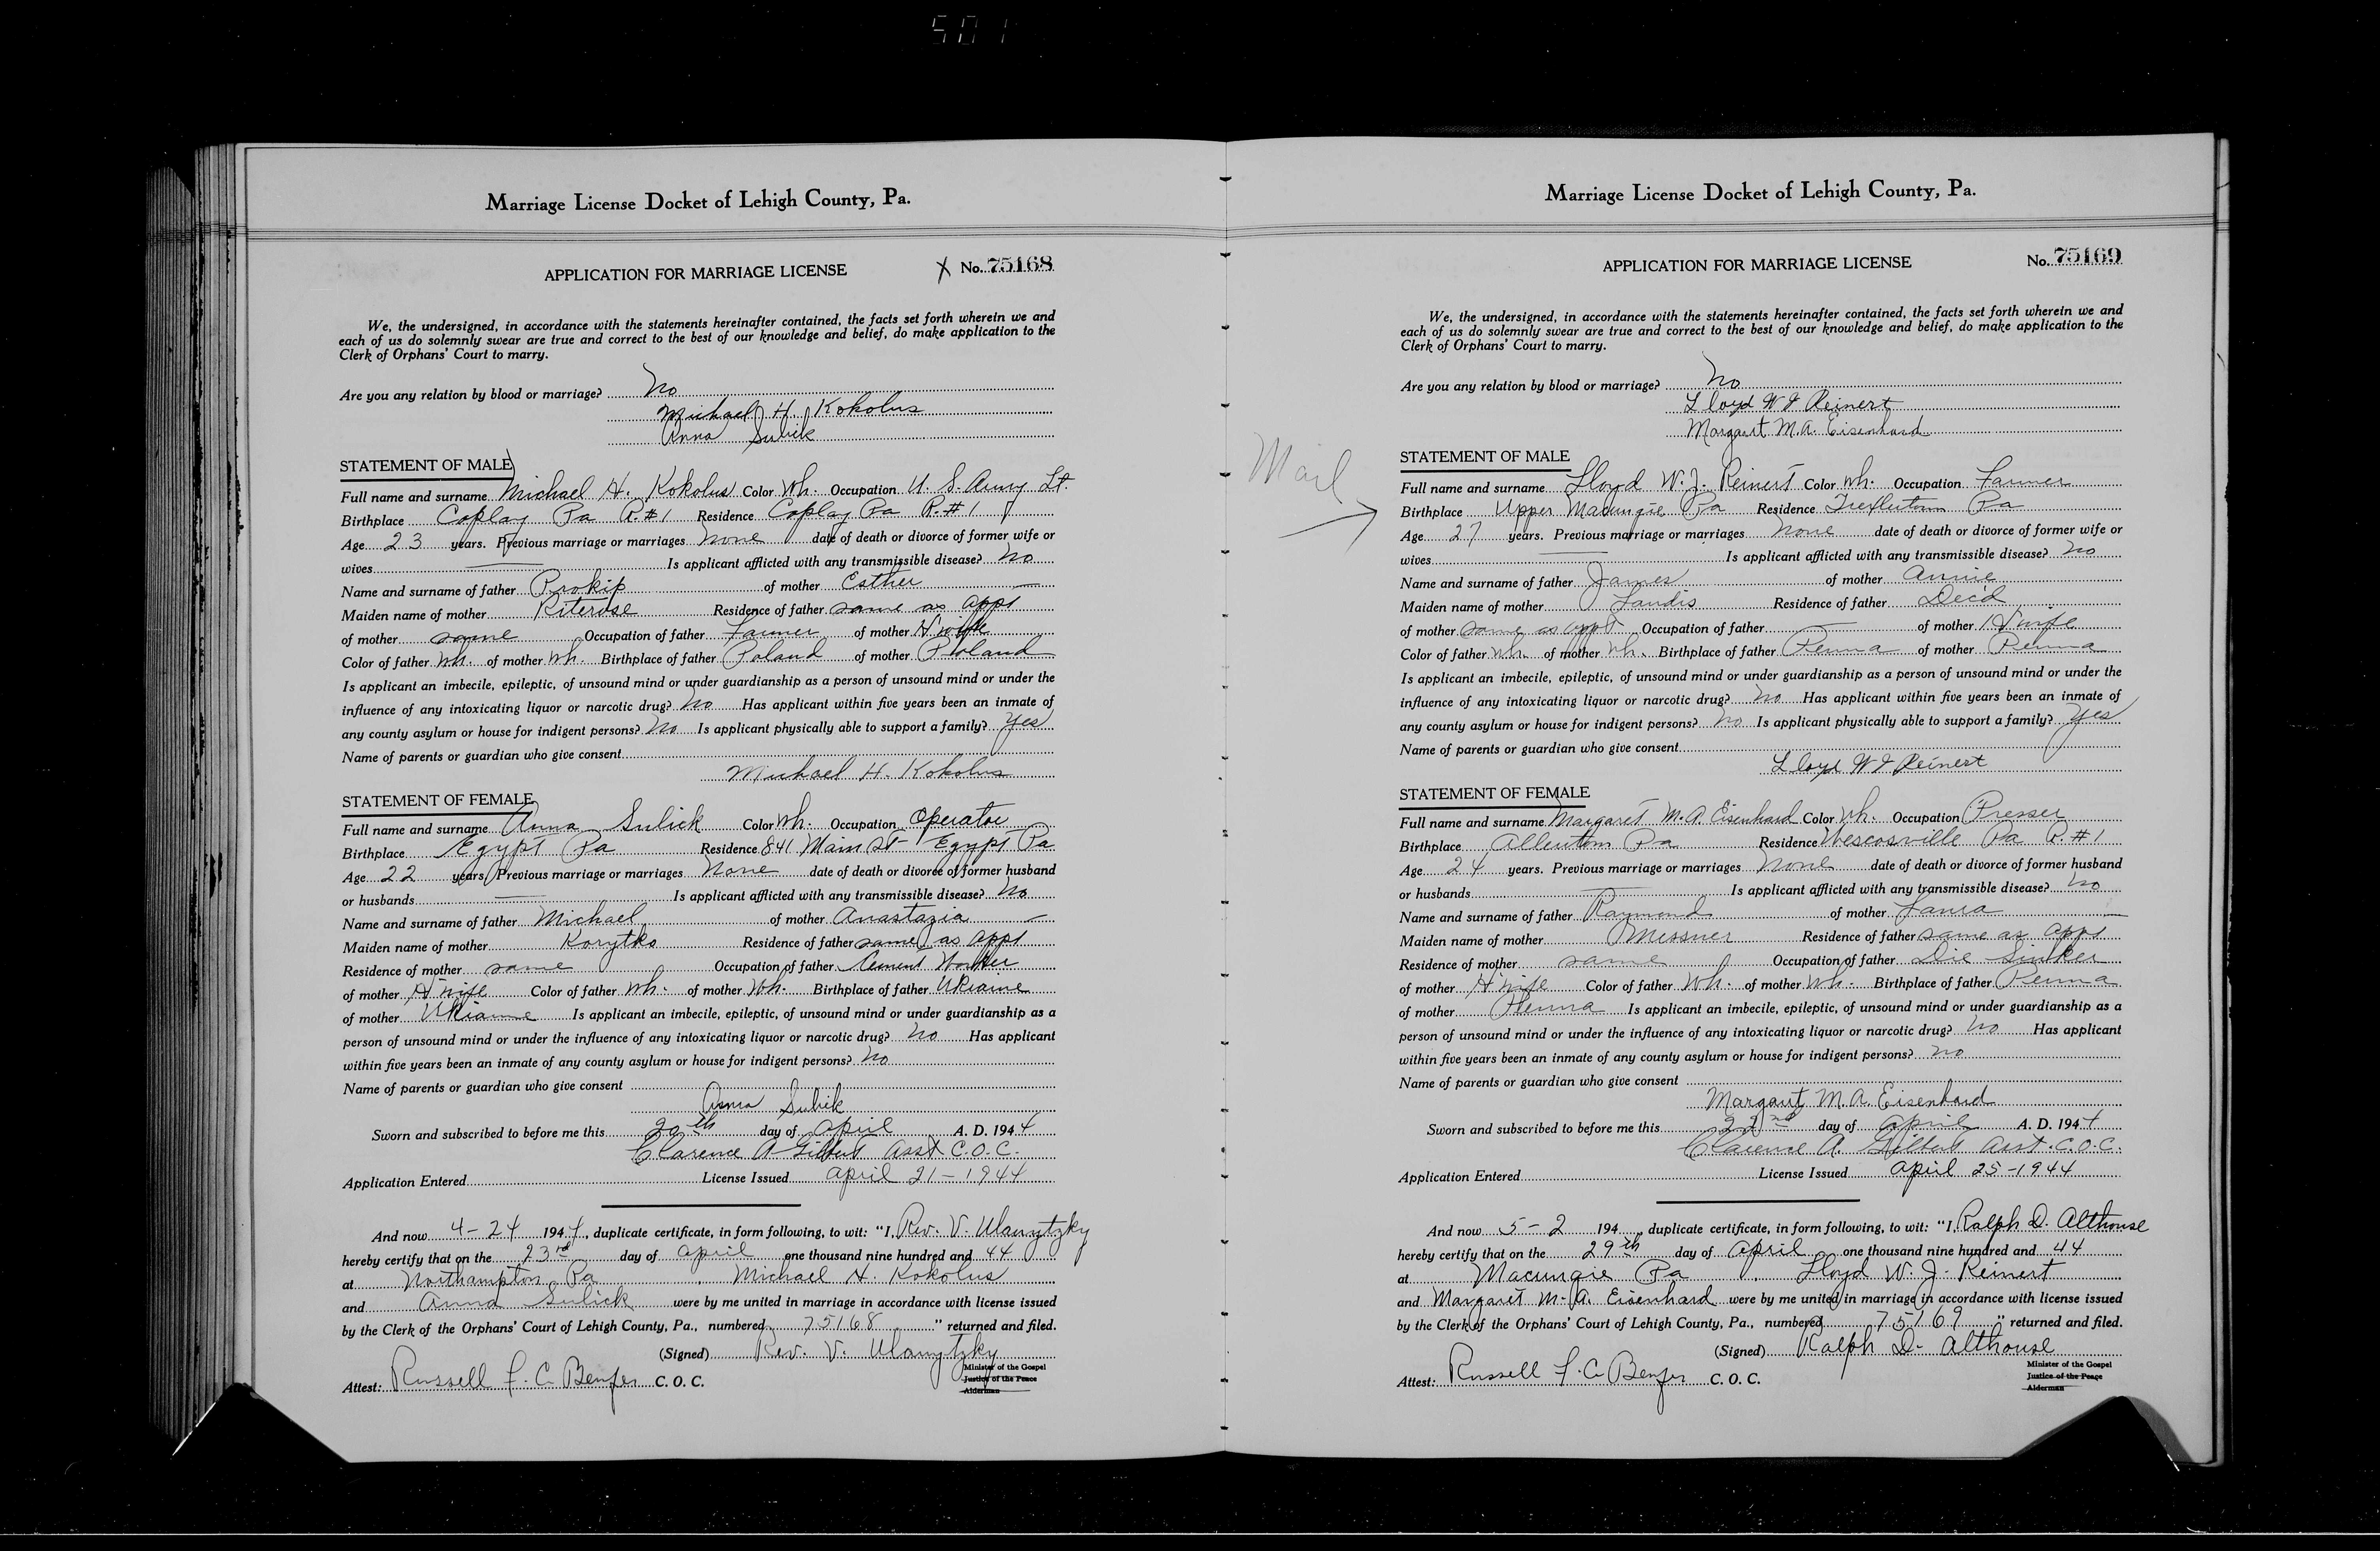 501
Marriage License Docket of Lehigh County, Pa.
APPLICATION FOR MARRIAGE LICENSE X No. 75168
We, the undersigned, in accordance with the statements hereinafter contained, the facts set forth wherein we and
each of us do solemnly swear are true and correct to the best of our knowledge and belief, do make application to the
Clerk of Orphans' Court to marry.
Are you any relation by blood or marriage? No
Michael H. Kokolus
Anna Sulick
STATEMENT OF MALE
Full name and surname Michael H. Kokolus Color Wh. Occupation U. S. Army Lt.
Birthplace Coplay Pa R.#1 Residence Coplay Pa R.#1
Age 23 years. Previous marriage or marriages None date of death or divorce of former wife or
wives Is applicant afflicted with any transmissible disease? No
Name and surname of father Prokip of mother Esther
Maiden name of mother Residence of father same as appt
of mother same Occupation of father Farmer of mother H'wife
Color of father Wh. of mother Wh. Birthplace of father Poland of mother Poland
Is applicant an imbecile, epileptic, of unsound mind or under guardianship as a person of unsound mind or under the
influence of any intoxicating liquor or narcotic drug? No Has applicant within five years been an inmate of
any county asylum or house for indigent persons? No Is applicant physically able to support a family? Yes
Name of parents or guardian who give consent
Michael H. Kokolus
STATEMENT OF FEMALE
Full name and surname Anna Sulick Color Wh. Occupation Operator
Birthplace Egypt Pa Residence 841 Main St Egypt Pa
Age 22 years. Previous marriage or marriages None date of death or divorce of former husband
or husbands Is applicant afflicted with any transmissible disease? No
Name and surname of father Michael of mother Anastazia
Maiden name of mother Korytko Residence of father same as appt
Residence of mother same Occupation of father Cement Worker
of mother H'wife Color of father Wh. of mother Wh. Birthplace of father Ukraine
of mother Ukraine Is applicant an imbecile, epileptic, of unsound mind or under guardianship as a
person of unsound mind or under the influence of any intoxicating liquor or narcotic drug? No Has applicant
within five years been an inmate of any county asylum or house for indigent persons? No
Name of parents or guardian who give consent
Anna Sulick
Sworn and subscribed to before me this 20th day of April A. D. 1944
Clarence A Gilbert Asst C.O.C.
Application Entered License Issued April 21-1944
And now 4-24 1944, duplicate certificate, in form following, to wit: "I, Rev. V. Ulanytzky
hereby certify that on the 23rd day of April one thousand nine hundred and 44
at Northampton Pa , Michael H. Kokolus
and Anna Sulick were by me united in marriage in accordance with license issued
by the Clerk of the Orphans' Court of Lehigh County, Pa., numbered 75168 " returned and filed.
(Signed) Rev. V. Ulanytzky
Minister of the Gospel
Justice of the Peace
Alderman
Attest: Russell F. C. Benfer C. O. C.
Marriage License Docket of Lehigh County, Pa.
APPLICATION FOR MARRIAGE LICENSE No. 75169
We, the undersigned, in accordance with the statements hereinafter contained, the facts set forth wherein we and
each of us do solemnly swear are true and correct to the best of our knowledge and belief, do make application to the
Clerk of Orphans' Court to marry.
Are you any relation by blood or marriage? No
Lloyd W J Reinert
Margaret M.A. Eisenhard
Mail
STATEMENT OF MALE
Full name and surname Lloyd W. J. Reinert Color Wh. Occupation Farmer
Birthplace Upper Macungie Pa Residence Trexlertown Pa
Age 27 years. Previous marriage or marriages None date of death or divorce of former wife or
wives Is applicant afflicted with any transmissible disease? No
Name and surname of father James of mother Annie
Maiden name of mother Landis Residence of father Dec'd
of mother same as appt Occupation of father of mother H'wife
Color of father Wh. of mother Wh. Birthplace of father Penna of mother Penna
Is applicant an imbecile, epileptic, of unsound mind or under guardianship as a person of unsound mind or under the
influence of any intoxicating liquor or narcotic drug? No Has applicant within five years been an inmate of
any county asylum or house for indigent persons? No Is applicant physically able to support a family? Yes
Name of parents or guardian who give consent
Lloyd W J Reinert
STATEMENT OF FEMALE
Full name and surname Margaret M. A. Eisenhard Color Wh. Occupation Presser
Birthplace Allentown Pa Residence Wescosville Pa R.#1
Age 24 years. Previous marriage or marriages None date of death or divorce of former husband
or husbands Is applicant afflicted with any transmissible disease? No
Name and surname of father Raymond of mother Laura
Maiden name of mother Messner Residence of father same as appt
Residence of mother same Occupation of father Die Sinker
of mother H'wife Color of father Wh. of mother Wh. Birthplace of father Penna
of mother Penna Is applicant an imbecile, epileptic, of unsound mind or under guardianship as a
person of unsound mind or under the influence of any intoxicating liquor or narcotic drug? No Has applicant
within five years been an inmate of any county asylum or house for indigent persons? No
Name of parents or guardian who give consent
Margaret M.A. Eisenhard
Sworn and subscribed to before me this 22nd day of April A. D. 1944
Clarence A. Gilbert Asst. C.O.C.
Application Entered License Issued April 25-1944
And now 5-2 194 , duplicate certificate, in form following, to wit: "I, Ralph D. Althouse
hereby certify that on the 29th day of April one thousand nine hundred and 44
at Macungie Pa , Lloyd W. J. Reinert
and Margaret M. A. Eisenhard were by me united in marriage in accordance with license issued
by the Clerk of the Orphans' Court of Lehigh County, Pa., numbered 75169 " returned and filed.
(Signed) Ralph D. Althouse
Minister of the Gospel
Justice of the Peace
Alderman
Attest: Russell F. C. Benfer C. O. C.